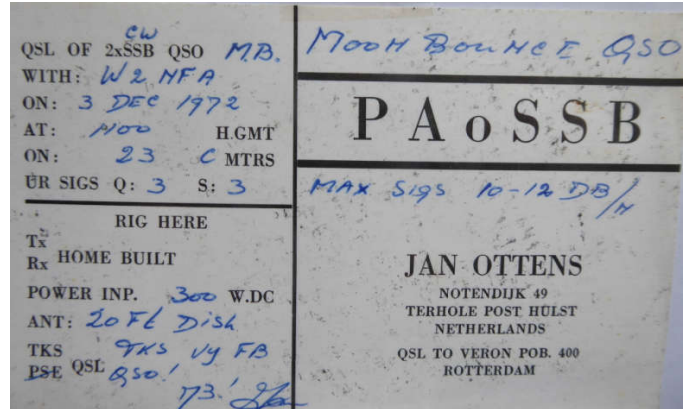 CW
QSL OF 2xSSB QSO M.B.
WITH: W2 NFA
ON: 3 DEC 1972
AT: 1400 H.GMT
ON: 23 C MTRS
UR SIGS Q: 3 S: 3
RIG HERE
Tx
Rx HOME BUILT
POWER INP. 300 W.DC
ANT: 20 Ft Dish
TKS TKS Vy FB
PSE QSL QSO!
73! Jan
MOON BOUNCE QSO
PAoSSB
MAX SIGS 10-12 DB/N
JAN OTTENS
NOTENDIJK 49
TERHOLE POST HULST
NETHERLANDS
QSL TO VERON POB. 400
ROTTERDAM